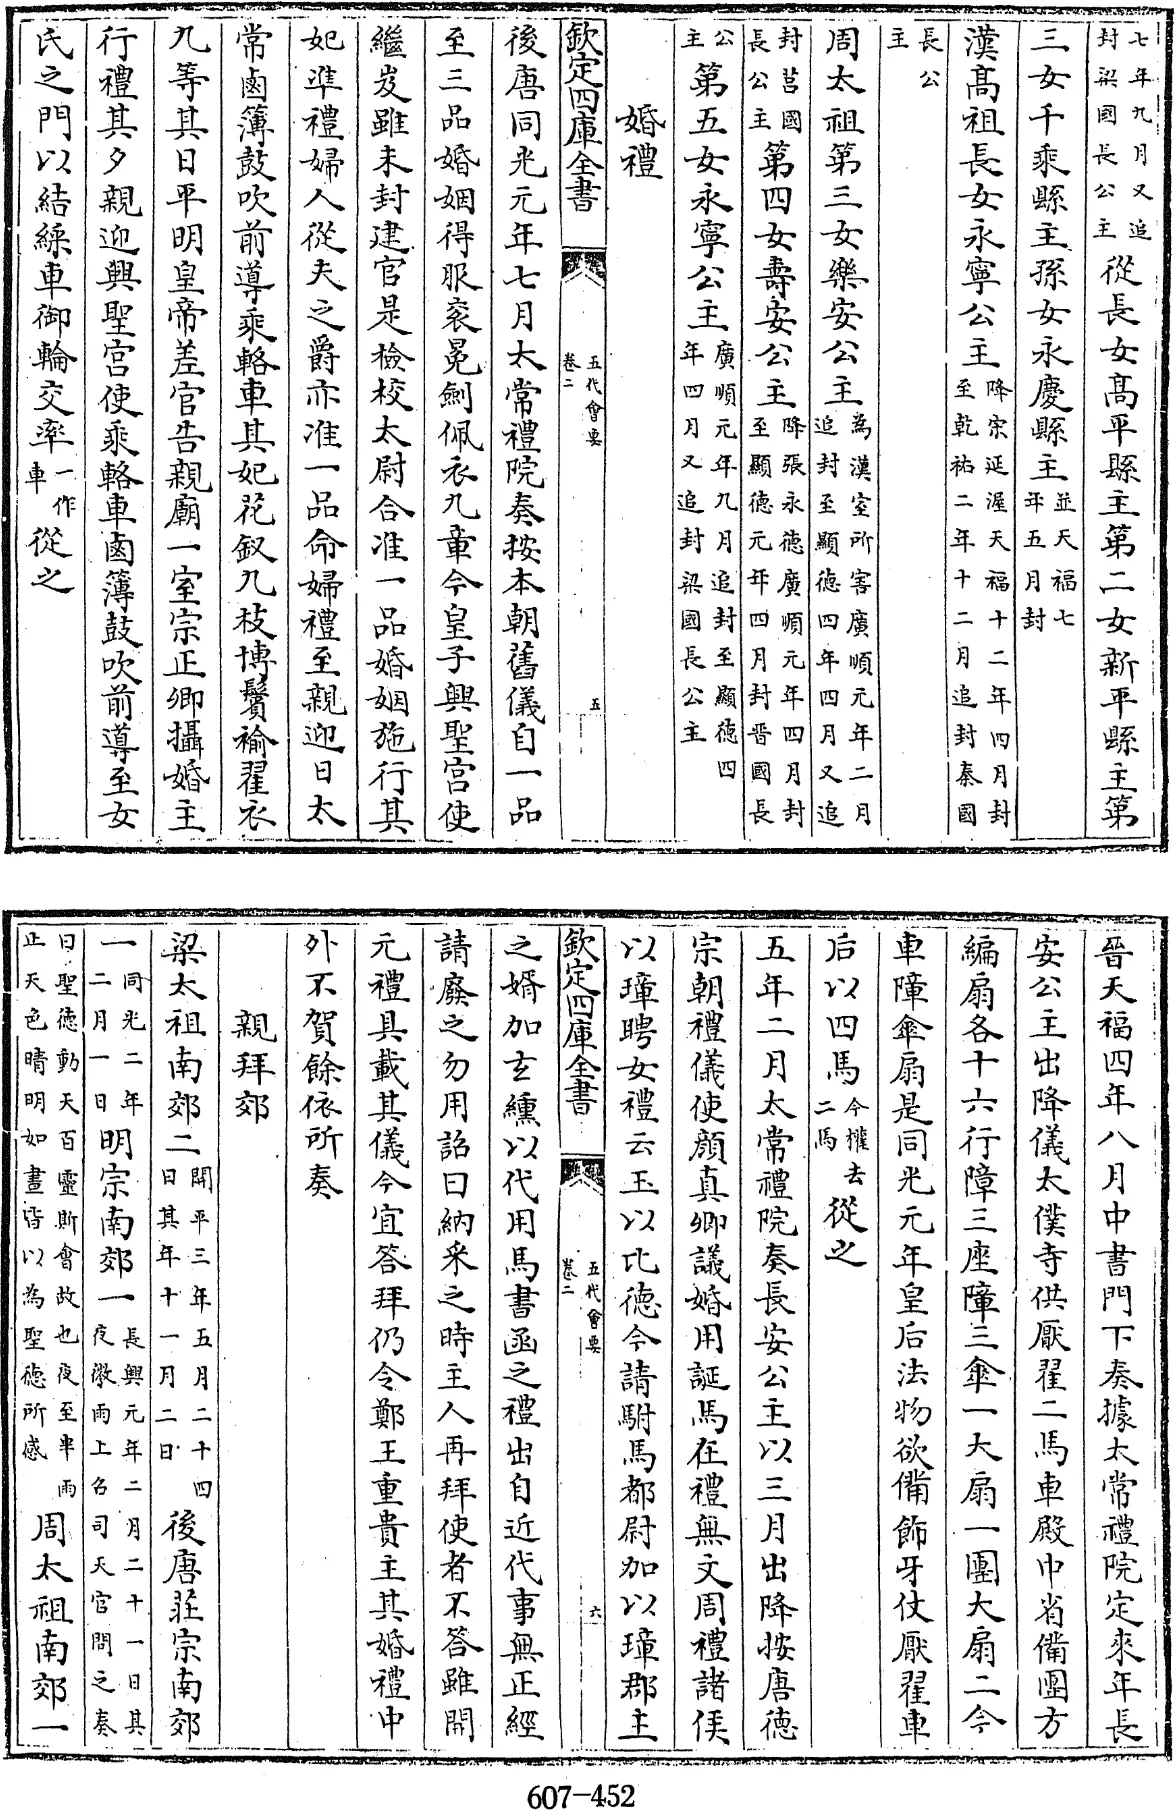 七年九月又追封梁國長公主從長女高平縣主第二女新平縣主第
三女千乘縣主孫女永慶縣主並天福七年五月封
漢高祖長女永寧公主降宋延渥天福十二年四月封至乾祐二年十二月追封秦國
長公主
周太祖第三女樂安公主為漢室所害廣順元年二月追封至顯德四年四月又追
封莒國長公主第四女壽安公主降張永德廣順元年四月封至顯德元年四月封晉國長
公主第五女永寧公主廣順元年九月追封至顯德四年四月又追封梁國長公主
婚禮
欽定四庫全書
五代會要
卷二
五
後唐同光元年七月太常禮院奏按本朝舊儀自一品
至三品婚姻得服衮冕劍佩衣九章今皇子興聖宮使
繼岌雖未封建官是檢校太尉合准一品婚姻施行其
妃準禮婦人從夫之爵亦准一品命婦禮至親迎日太
常鹵簿鼓吹前導乘輅車其妃花釵九枝博鬢褕翟衣
九等其日平明皇帝差官告親廟一室宗正卿攝婚主
行禮其夕親迎興聖宮使乘輅車鹵簿鼓吹前導至女
氏之門以結綵車御輪交率一作車從之
晉天福四年八月中書門下奏據太常禮院定來年長
安公主出降儀太僕寺供厭翟二馬車殿中省備團方
編扇各十六行障三座障三傘一大扇一團大扇二今
車障傘扇是同光元年皇后法物欲備飾牙仗厭翟車
后以四馬今權去二馬從之
五年二月太常禮院奏長安公主以三月出降按唐德
宗朝禮儀使顔真卿議婚用誕馬在禮無文周禮諸侯
以璋聘女禮云玉以比德今請駙馬都尉加以璋郡主
欽定四庫全書
五代會要
卷二
六
之婿加玄纁以代用馬書函之禮出自近代事無正經
請廢之勿用詔曰納采之時主人再拜使者不答雖開
元禮具載其儀今宜答拜仍令鄭王重貴主其婚禮中
外不賀餘依所奏
親拜郊
梁太祖南郊二開平三年五月二十四日其年十一月二日後唐莊宗南郊
一同光二年二月一日明宗南郊一長興元年二月二十一日其夜微雨上召司天官問之奏
曰聖德動天百靈斯會故也夜至半雨止天色晴明如晝皆以為聖德所感周太祖南郊一
607-452